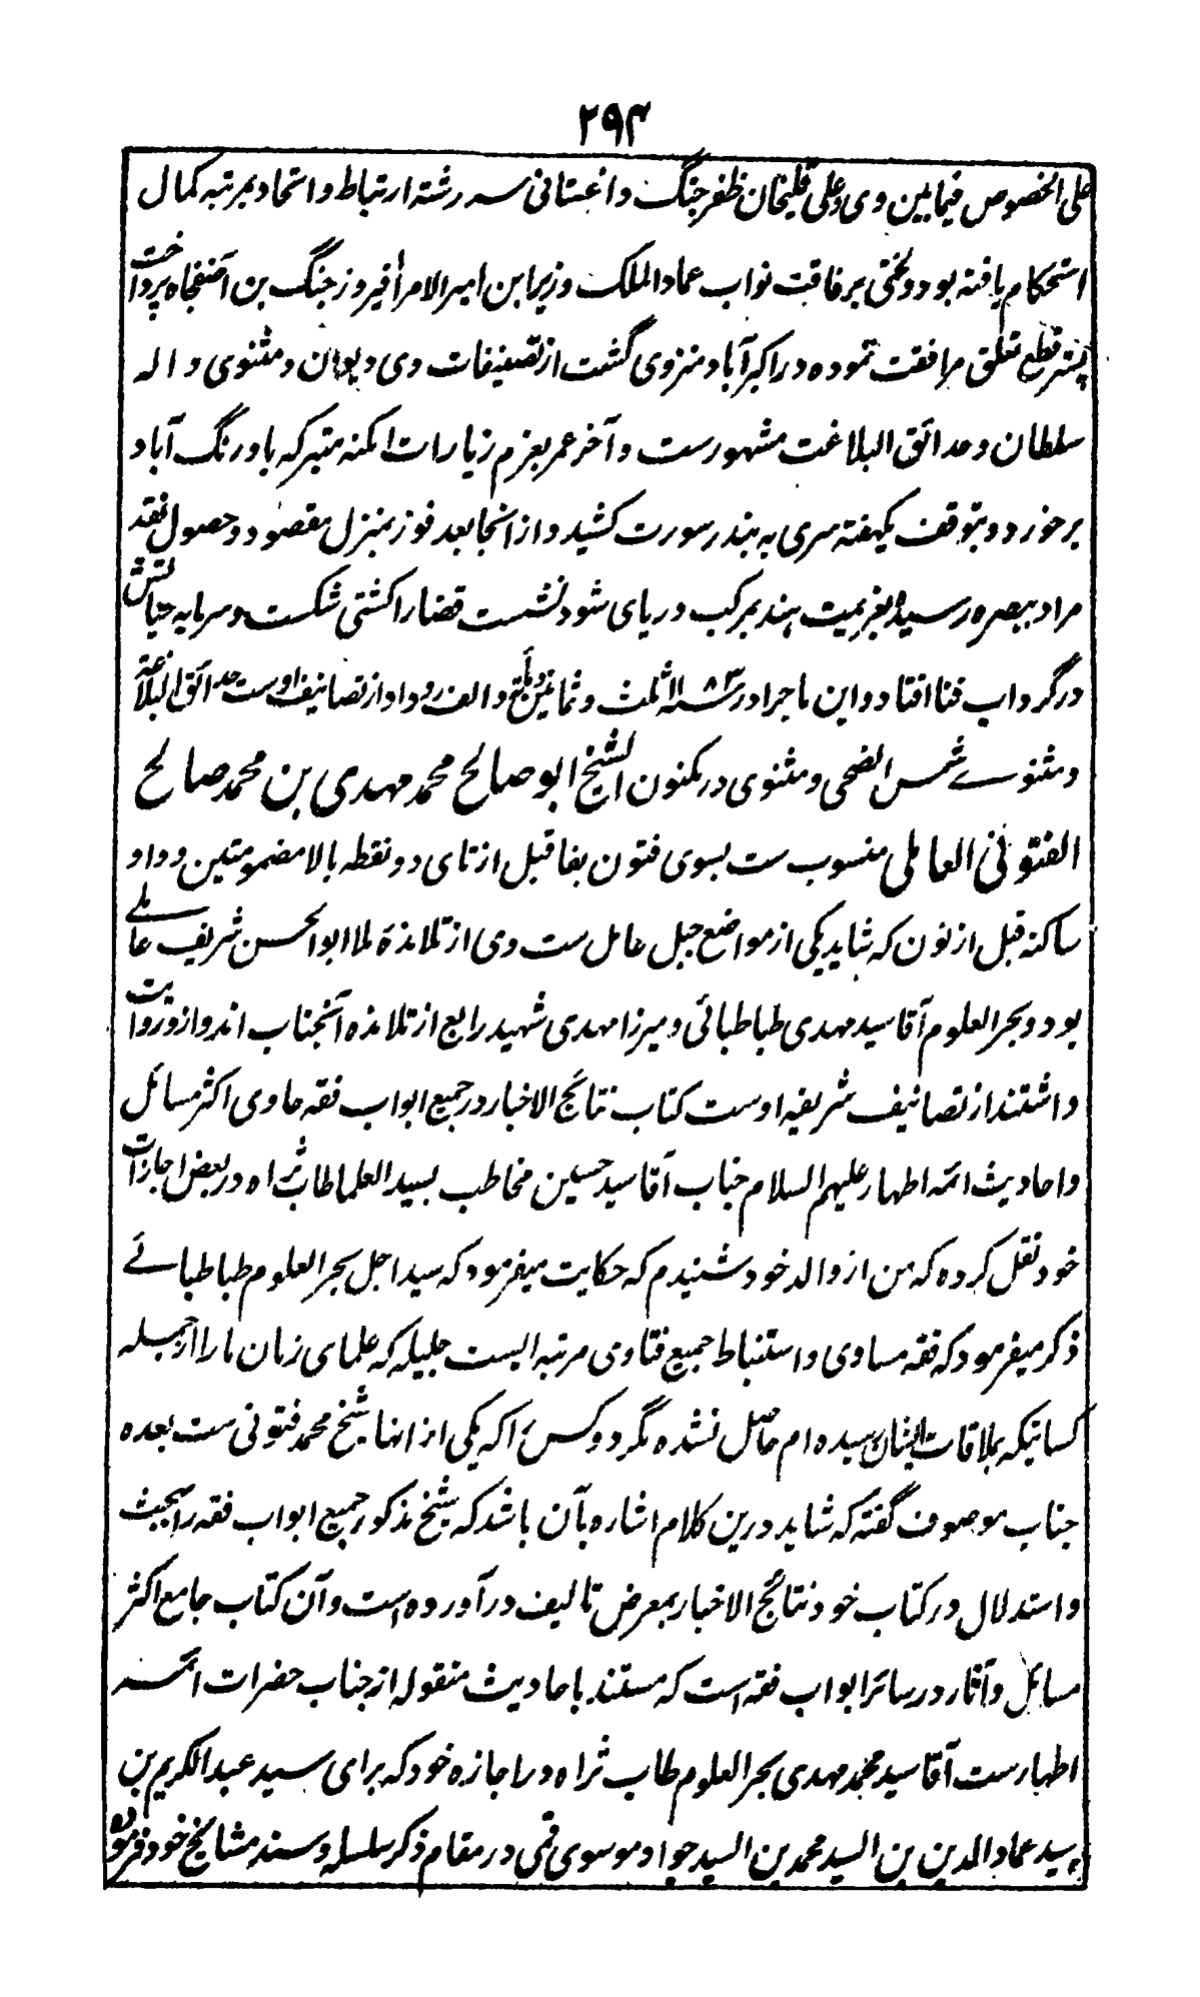 ۲۹۴
علی الخصوص فیما بین وی و علی قلیخان ظفر جنگ داغستانی سررشته ارتباط و اتحاد بمرتبه کمال
استحکام یافته بود و لختی برفاقت نواب عماد الملک وزیر ابن امیر الامرا فیروز جنگ بن آصفجاه پرداخت
پستر قطع تعلق مرافقت نموده در اکبرآباد منزوی گشت از تصنیفات وی دیوان و مثنوی واله
سلطان و حدائق البلاغت مشهورست و آخر عمر بعزم زیارات امکنه متبرکه باورنگ آباد
برخورد و بتوقف یکهفته سری به بندر سورت کشید و از انجا بعد فوز بمنزل مقصود و حصول نقد
مراد ببصره رسید و بعزیمت هند بمرکب دریای شود نشست قضارا کشتی شکست و سرمایه حیاتش
در گرداب فنا افتاد و این ماجرا در سنه ۱۱۸۳ ثلث و ثمانین و مأة و الف رو داد از تصانیف اوست حدائق البلاغة
و مثنوے شمس الضحی و مثنوی در مکنون الشیخ ابو صالح محمد مهدی بن محمد صالح
الفتونی العاملی منسوب ست بسوی فتون بفا قبل از تای دو نقطه بالا مضمومتین و واو
ساکنه قبل از نون که شاید یکی از مواضع جبل عامل ست وی از تلامذهٔ ملا ابوالحسن شریف عاملے
بود و بحر العلوم آقا سید مهدی طباطبائی و میرزا مهدی شهید رابع از تلامذه آنجناب اند و ازو روایت
داشتند از تصانیف شریفه اوست کتاب نتائج الاخبار در جمیع ابواب فقه حاوی اکثر مسائل
و احادیث ائمه اطهار علیهم السلام جناب آقا سید حسین مخاطب بسید العلما طاب ثراه در بعض اجازات
خود نقل کرده که من از والد خود شنیدم که حکایت میفرمود که سید اجل بحر العلوم طباطبائے
ذکر میفرمود که فقه مساوی و استنباط جمیع فتاوی مرتبه ایست جلیله که علمای زمان ما را از جمله
کسانیکه بملاقات ایشان رسیده ام حاصل نشده مگر دو کس را که یکی از انها شیخ محمد فتونی ست بعده
جناب موصوف گفته که شاید درین کلام اشاره بآن باشد که شیخ مذکور جمیع ابواب فقه را ببحث
و استدلال در کتاب خود نتائج الاخبار بمعرض تالیف درآورده است و آن کتاب جامع اکثر
مسائل و آثار در سائر ابواب فقه است که مستند باحادیث منقوله از جناب حضرات ائمه
اطهارست آقا سید محمد مهدی بحر العلوم طاب ثراه در اجازه خود که برای سید عبد الکریم بن
سید عماد الدین بن السید محمد بن السید جواد موسوی قمی در مقام ذکر سلسله و سند مشائخ خود فرموده